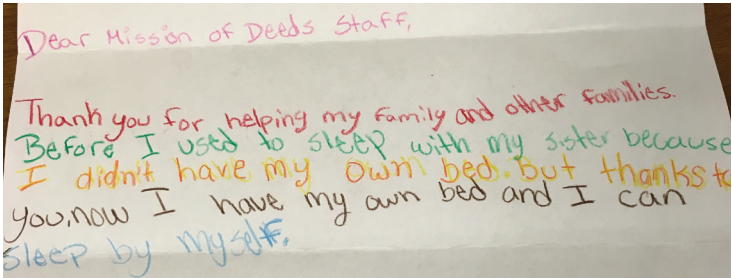 Dear Mission of Deeds Staff,
Thank you for helping my family and other families.
Before I used to sleep with my sister because
I didn't have my own bed. But thanks to
you, now I have my own bed and I can
sleep by myself.